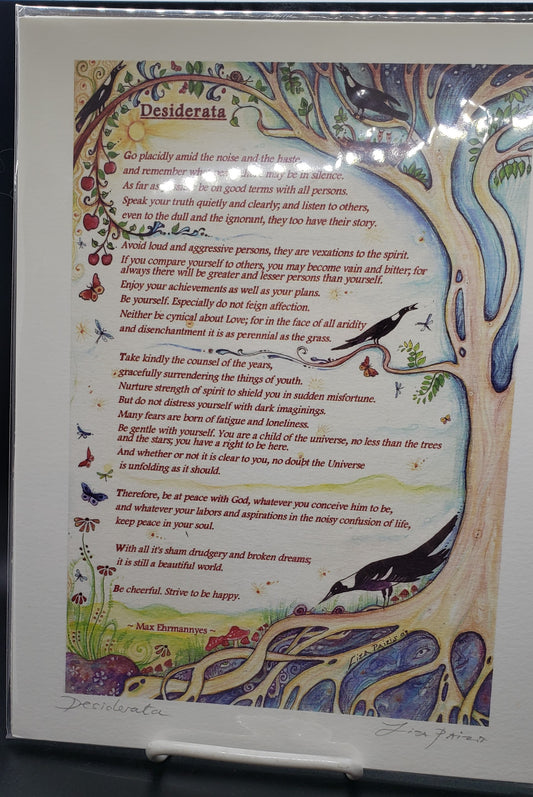 Desiderata
Go placidly amid the noise and the haste,
and remember what may be in silence.
As far as be on good terms with all persons.
Speak your truth quietly and clearly; and listen to others,
even to the dull and the ignorant, they too have their story.
Avoid loud and aggressive persons, they are vexations to the spirit.
If you compare yourself to others, you may become vain and bitter; for
always there will be greater and lesser persons than yourself.
Enjoy your achievements as well as your plans.
Be yourself. Especially do not feign affection.
Neither be cynical about Love; for in the face of all aridity
and disenchantment it is as perennial as the grass.
Take kindly the counsel of the years,
gracefully surrendering the things of youth.
Nurture strength of spirit to shield you in sudden misfortune.
But do not distress yourself with dark imaginings.
Many fears are born of fatigue and loneliness.
Be gentle with yourself. You are a child of the universe, no less than the trees
and the stars; you have a right to be here.
And whether or not it is clear to you, no doubt the Universe
is unfolding as it should.
Therefore, be at peace with God, whatever you conceive him to be,
and whatever your labors and aspirations in the noisy confusion of life,
keep peace in your soul.
With all it's sham drudgery and broken dreams;
it is still a beautiful world.
Be cheerful. Strive to be happy.
~ Max Ehrmannyes ~
Liza Paizis
Desiderata
Liza Paizis